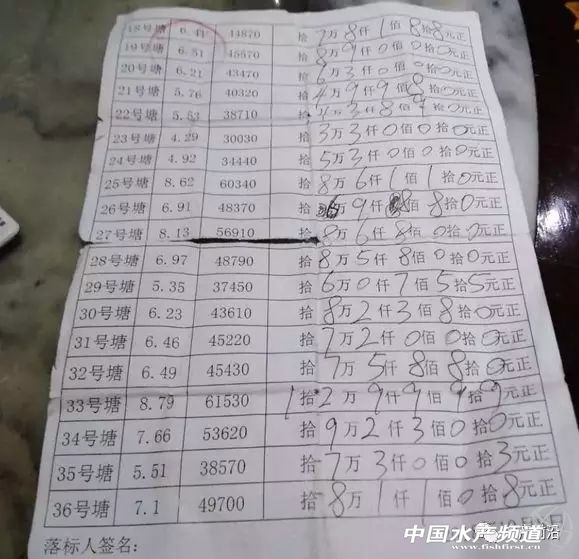 18号塘 6.41 44870 拾7万8仟1佰8拾8元正
19号塘 6.51 45570 拾8万9仟0佰8拾0元正
20号塘 6.21 43470 拾6万3仟0佰0拾0元正
21号塘 5.76 40320 拾4万9仟9佰8拾0元正
22号塘 5.53 38710 拾4万3仟8佰9拾0元正
23号塘 4.29 30030 拾3万3仟0佰0拾0元正
24号塘 4.92 34440 拾5万3仟0佰0拾0元正
25号塘 8.62 60340 拾8万6仟1佰1拾0元正
26号塘 6.91 48370 拾万9仟8佰8拾0元正
27号塘 8.13 56910 拾8万6仟8佰0拾0元正
28号塘 6.97 48790 拾8万5仟8佰0拾0元正
29号塘 5.35 37450 拾6万0仟7佰5拾5元正
30号塘 6.23 43610 拾8万2仟3佰8拾0元正
31号塘 6.46 45220 拾7万2仟0佰0拾0元正
32号塘 6.49 45430 拾7万5仟8佰8拾0元正
33号塘 8.79 61530 1拾2万9仟9佰9拾9元正
34号塘 7.66 53620 拾9万2仟3佰0拾0元正
35号塘 5.51 38570 拾7万3仟0佰0拾3元正
36号塘 7.1 49700 拾8万1仟1佰0拾8元正
落标人签名：
中国水产频道
www.fishfirst.cn
前沿